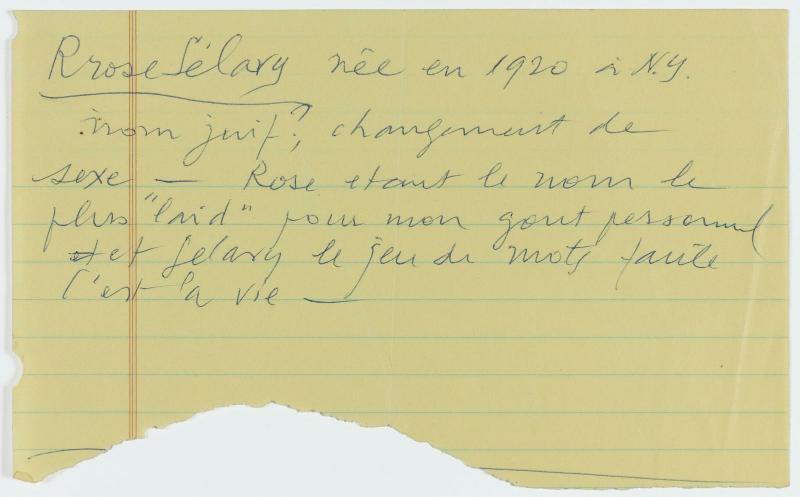 Rrose Sélavy née en 1920 à N.Y.
nom juif?, changement de
sexe — Rose etant le nom le
plus "laid" pour mon gout personnel
et Sélavy le jeu de mots facile
C'est la vie —